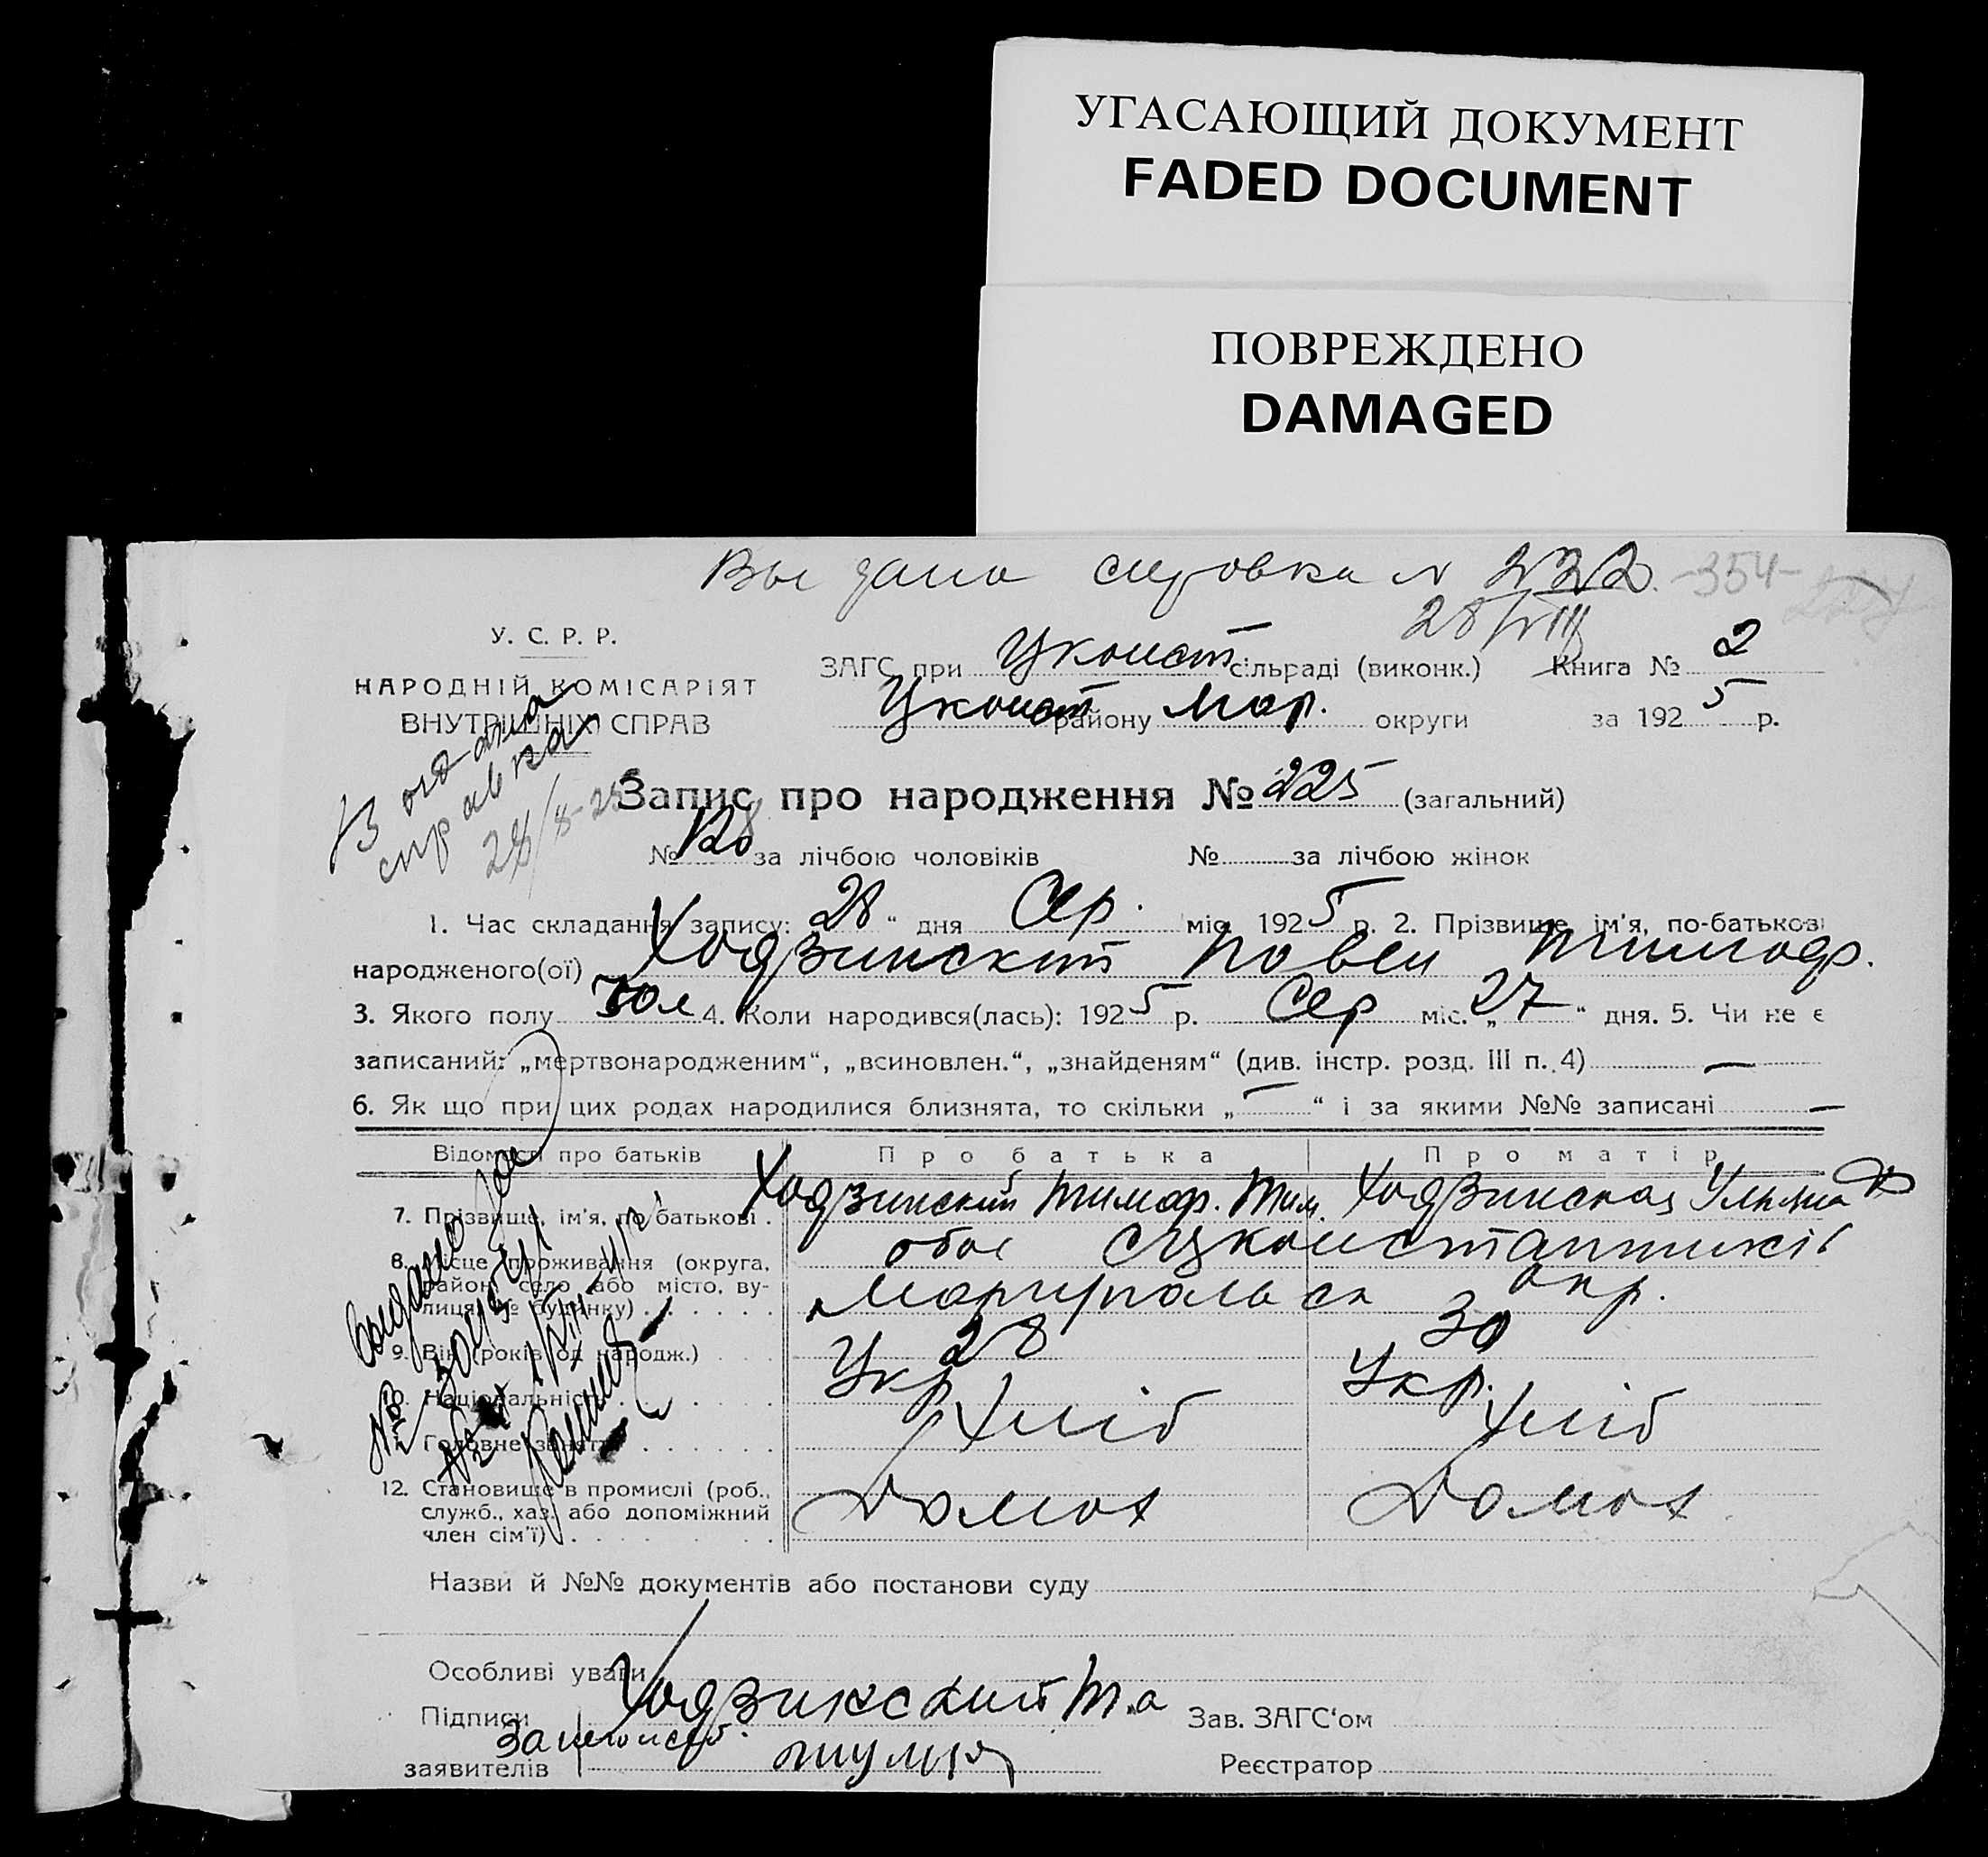 УГАСАЮЩИЙ ДОКУМЕНТ
FADED DOCUMENT
ПОВРЕЖДЕНО
DAMAGED
Выдана справка № 232 -354-
28/VIII
У. С. Р. Р.
НАРОДНІЙ КОМІСАРІЯТ
ВНУТРІШНІХ СПРАВ
ЗАГС при Уконст сільраді (виконк.) Книга № 2
Уконст району Мар. округи за 1925 р.
справка
28/8-25
Запис про народження № 225 (загальний)
№ 128 за лічбою чоловіків № за лічбою жінок
1. Час складання запису: 28 “ дня Сер. міс. 1925 р. 2. Прізвище, ім'я, по-батькові
народженого(ої) Ходзинский Павел Тимоф.
3. Якого полу 4. Коли народився(лась): 1925 р. Сер міс. „ 27 “ дня. 5. Чи не є
записаний: „мертвонародженим“, „всиновлен.“, „знайденям“ (див. інстр. розд. III п. 4) —
6. Як що при цих родах народилися близнята, то скільки „ — “ і за якими №№ записані —
Відомості про батьків Про батька Про матір
7. Прізвище, ім'я, по батькові . Ходзинский Тимоф. Тим. Ходзинская Ульяна
8. Місце проживання (округа, район, село або місто, вулиця, № будинку) . . . . . . обое
Мариупольск окр.
9. Вік (років од народж.) . . . 28 30
10. Національність . . . . . . Укр Укр.
11. Головне заняття . . . . . . Хліб Хліб
12. Становище в промислі (роб.,
служб., хаз. або допоміжний
член сім'ї) . . . . . . . Домох Домох
Назви й №№ документів або постанови суду
Особливі уваги
Підписи Ходзинский Зав. ЗАГС‘ом
заявителів Реєстратор